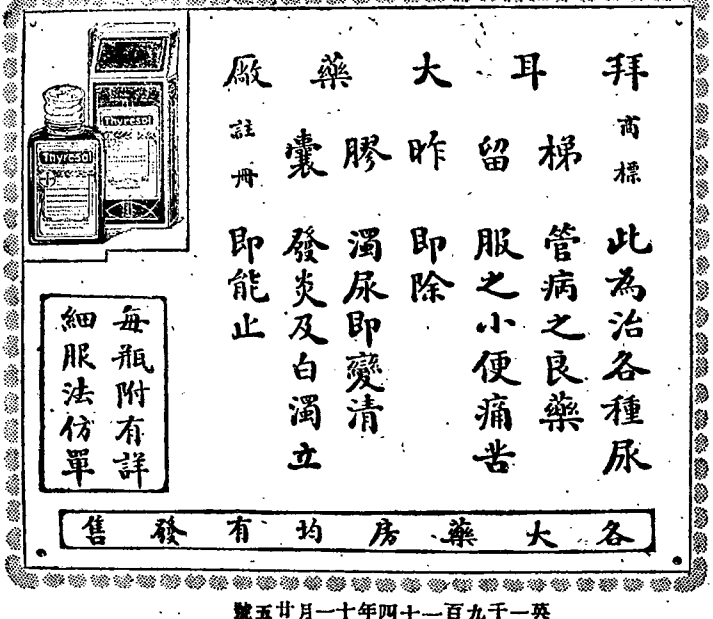 拜耳大藥廠
商標
梯留昨膠囊
註冊
此為治各種尿
管病之良藥
服之小便痛苦
即除
濁尿即變清
發炎及白濁立
即能止
Thyresol
Thyresol
每瓶附有詳
細服法仿單
各大藥房均有發售
英一千九百一十四年十一月廿五號